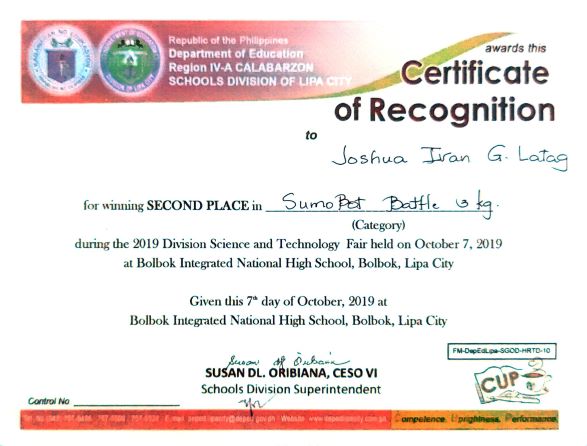 Republic of the Philippines
Department of Education
Region IV-A CALABARZON
SCHOOLS DIVISION OF LIPA CITY
awards this
Certificate
of Recognition
to
Joshua Ivan G. Latag
for winning SECOND PLACE in Sumo Bot Battle 3 kg.
(Category)
during the 2019 Division Science and Technology Fair held on October 7, 2019
at Bolbok Integrated National High School, Bolbok, Lipa City
Given this 7th day of October, 2019 at
Bolbok Integrated National High School, Bolbok, Lipa City
SUSAN DL. ORIBIANA, CESO VI
Schools Division Superintendent
FM-DepEdLipa-SGOD-HRTD-10
CUP
Control No
Competence Uprightness Performance